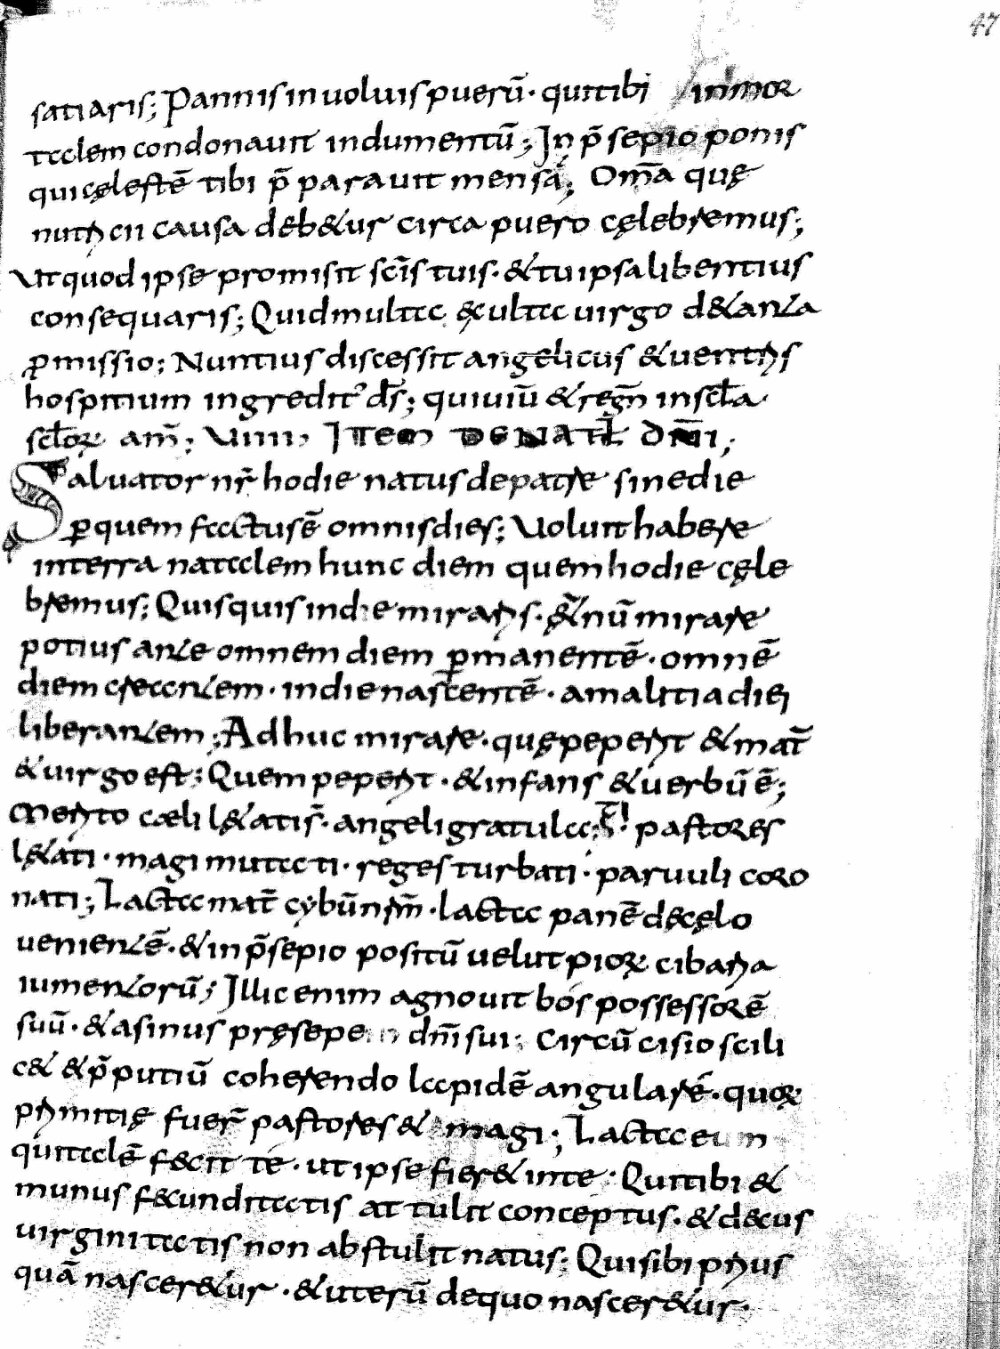 47
satiaris; Pannis inuoluis puerū· qui tibi inmor
talem condonauit indumentū; In p̄sepio ponis
qui cęlestē tibi p̄parauit mensā; Om̄a quę
causa deb&ur circa puero cęlebremus;
Ut quod ipse promisit sc̄is tuis· & tu ipsa libentius
consequaris; Quid multa & culta uirgo del&anta
ꝓmissio; Nuntius discessit angelicus & uentris
hospitium ingredit' d̄s; qui uiū & regn̄ in sc̄la
sc̄loꝝ am̄; VIIII, ITEM DE NATL̄ DN̄I;
Saluator nr̄ hodie natus de patre sine die
ꝑ quem factus ē omnis dies; Uoluit habere
in terra natalem hunc diem quem hodie cęle
bremus; Quisquis in die miraris· &nū mirare
potius ante omnem diem ꝑmanentē· omnē
diem creantem· in die nascentē· a malitia diei
liberantem; Adhuc mirare· quę peperit & mat̄
& uirgo est; Quem peperit· & infans & uerbū ē;
Merito cæli l&atis̄· angeli gratula s̄! pastores
l&ati· magi mutati· reges turbati· paruuli coro
nati; Lacta mat̄ cybū nr̄m· lacta panē de cęlo
uenientē· & in p̄sepio positū uelut pioꝝ cibaria
iumentorū; Illic enim agnouit bos possessorē
suū· & asinus pręsepe dn̄i sui; Circūcisio scili
c& & p̄putiū coherendo lapidē angularē· quoꝝ
primitię fuer̄ pastores & magi; Lacta eum
qui talē fecit te· ut ipse fier& in te· Qui tibi &
munus fecunditatis attulit conceptus· & decus
uirginitatis non abstulit natus; Qui sibi prius
quā nascer&ur· & uterū de quo nascer&ur·